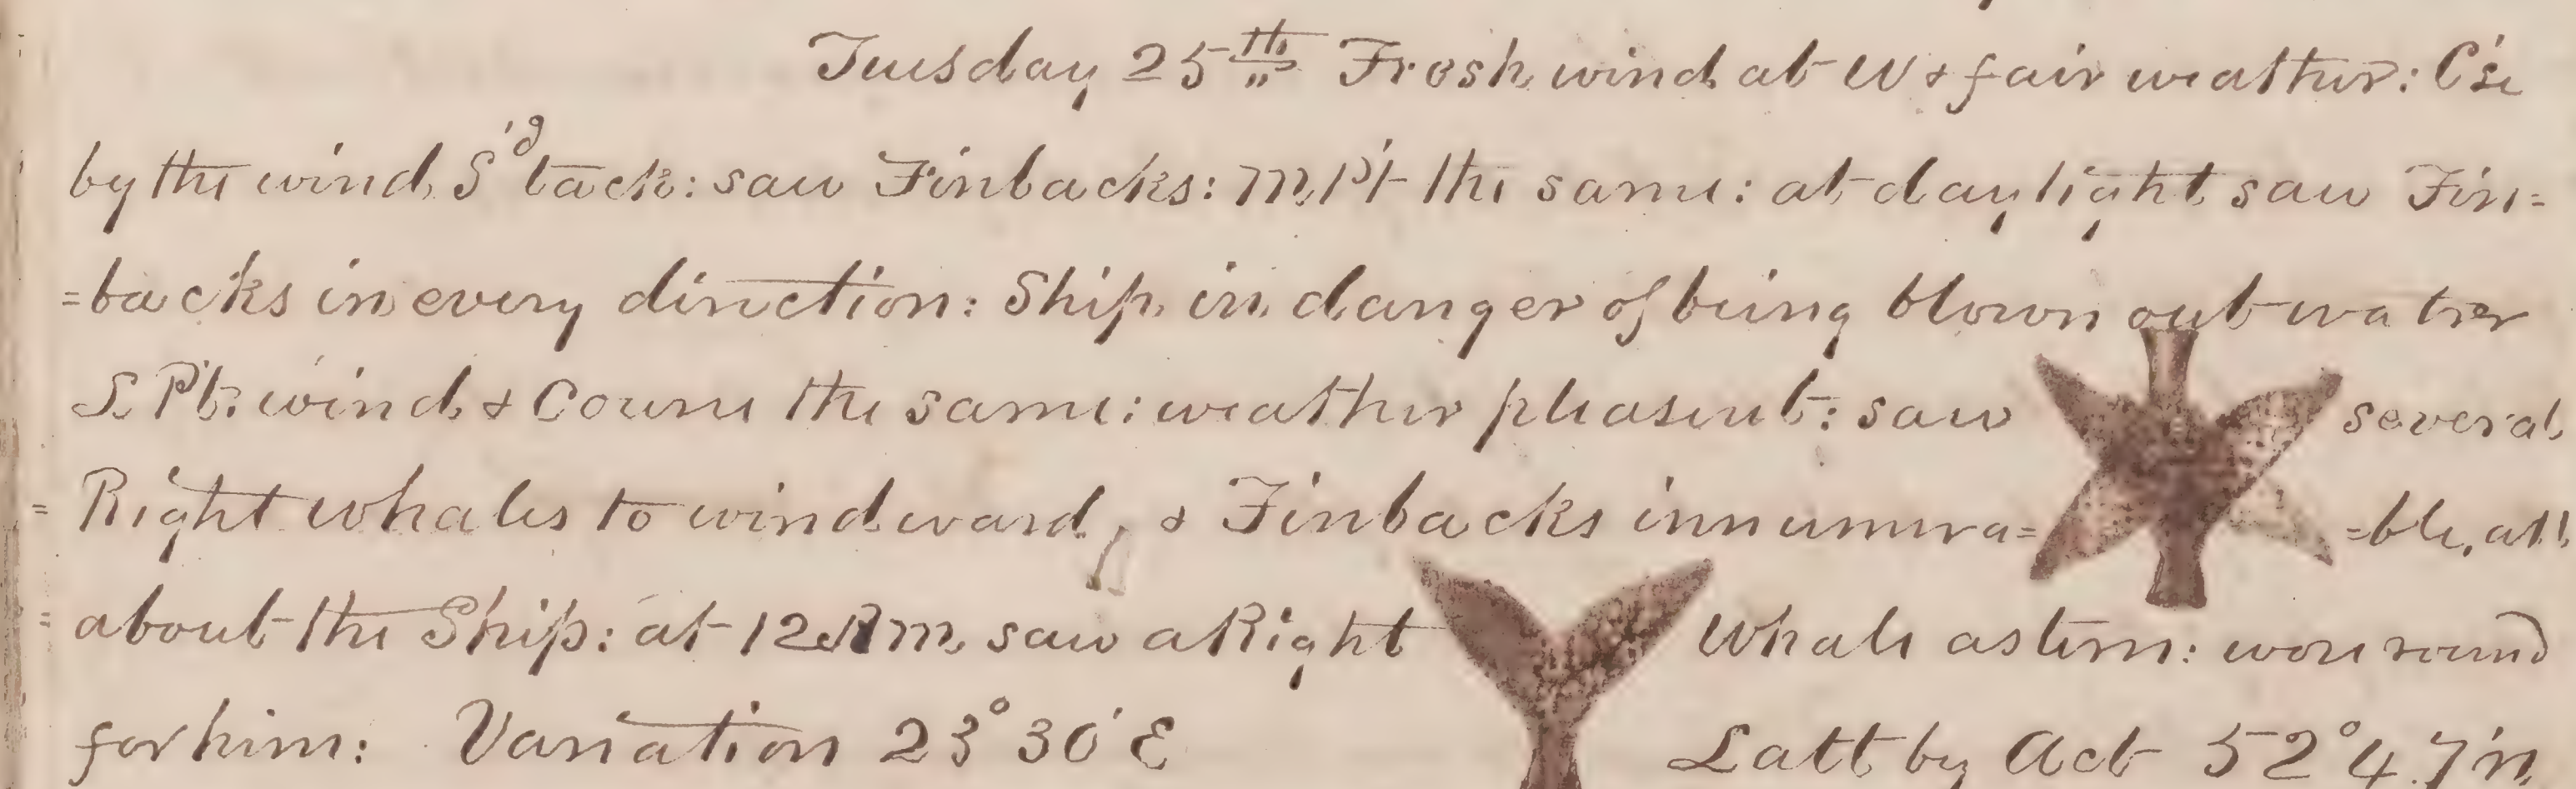 Tuesday 25th Fresh wind at W & fair weather: C'se
by the wind S'd tack: saw Finbacks: M P't the same: at daylight saw Fin=
=backs in every direction: Ship in danger of being blown out water
L Pt. wind & Course the same: weather pleasent: saw several
= Right whales to windward, & Finbacks innumera= =ble, all
= about the Ship: at 12 M saw a Right Whale astern: wore round
for him: Variation 23° 30' E Latt by Act 52° 47' N